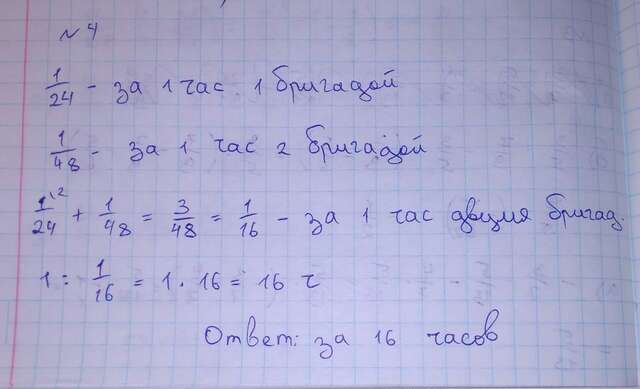 № 4
1/24 - за 1 час 1 бригадой
1/48 - за 1 час 2 бригадой
1\2/24 + 1/48 = 3/48 = 1/16 - за 1 час двумя бригад.
1 : 1/16 = 1 · 16 = 16 ч
Ответ: за 16 часов